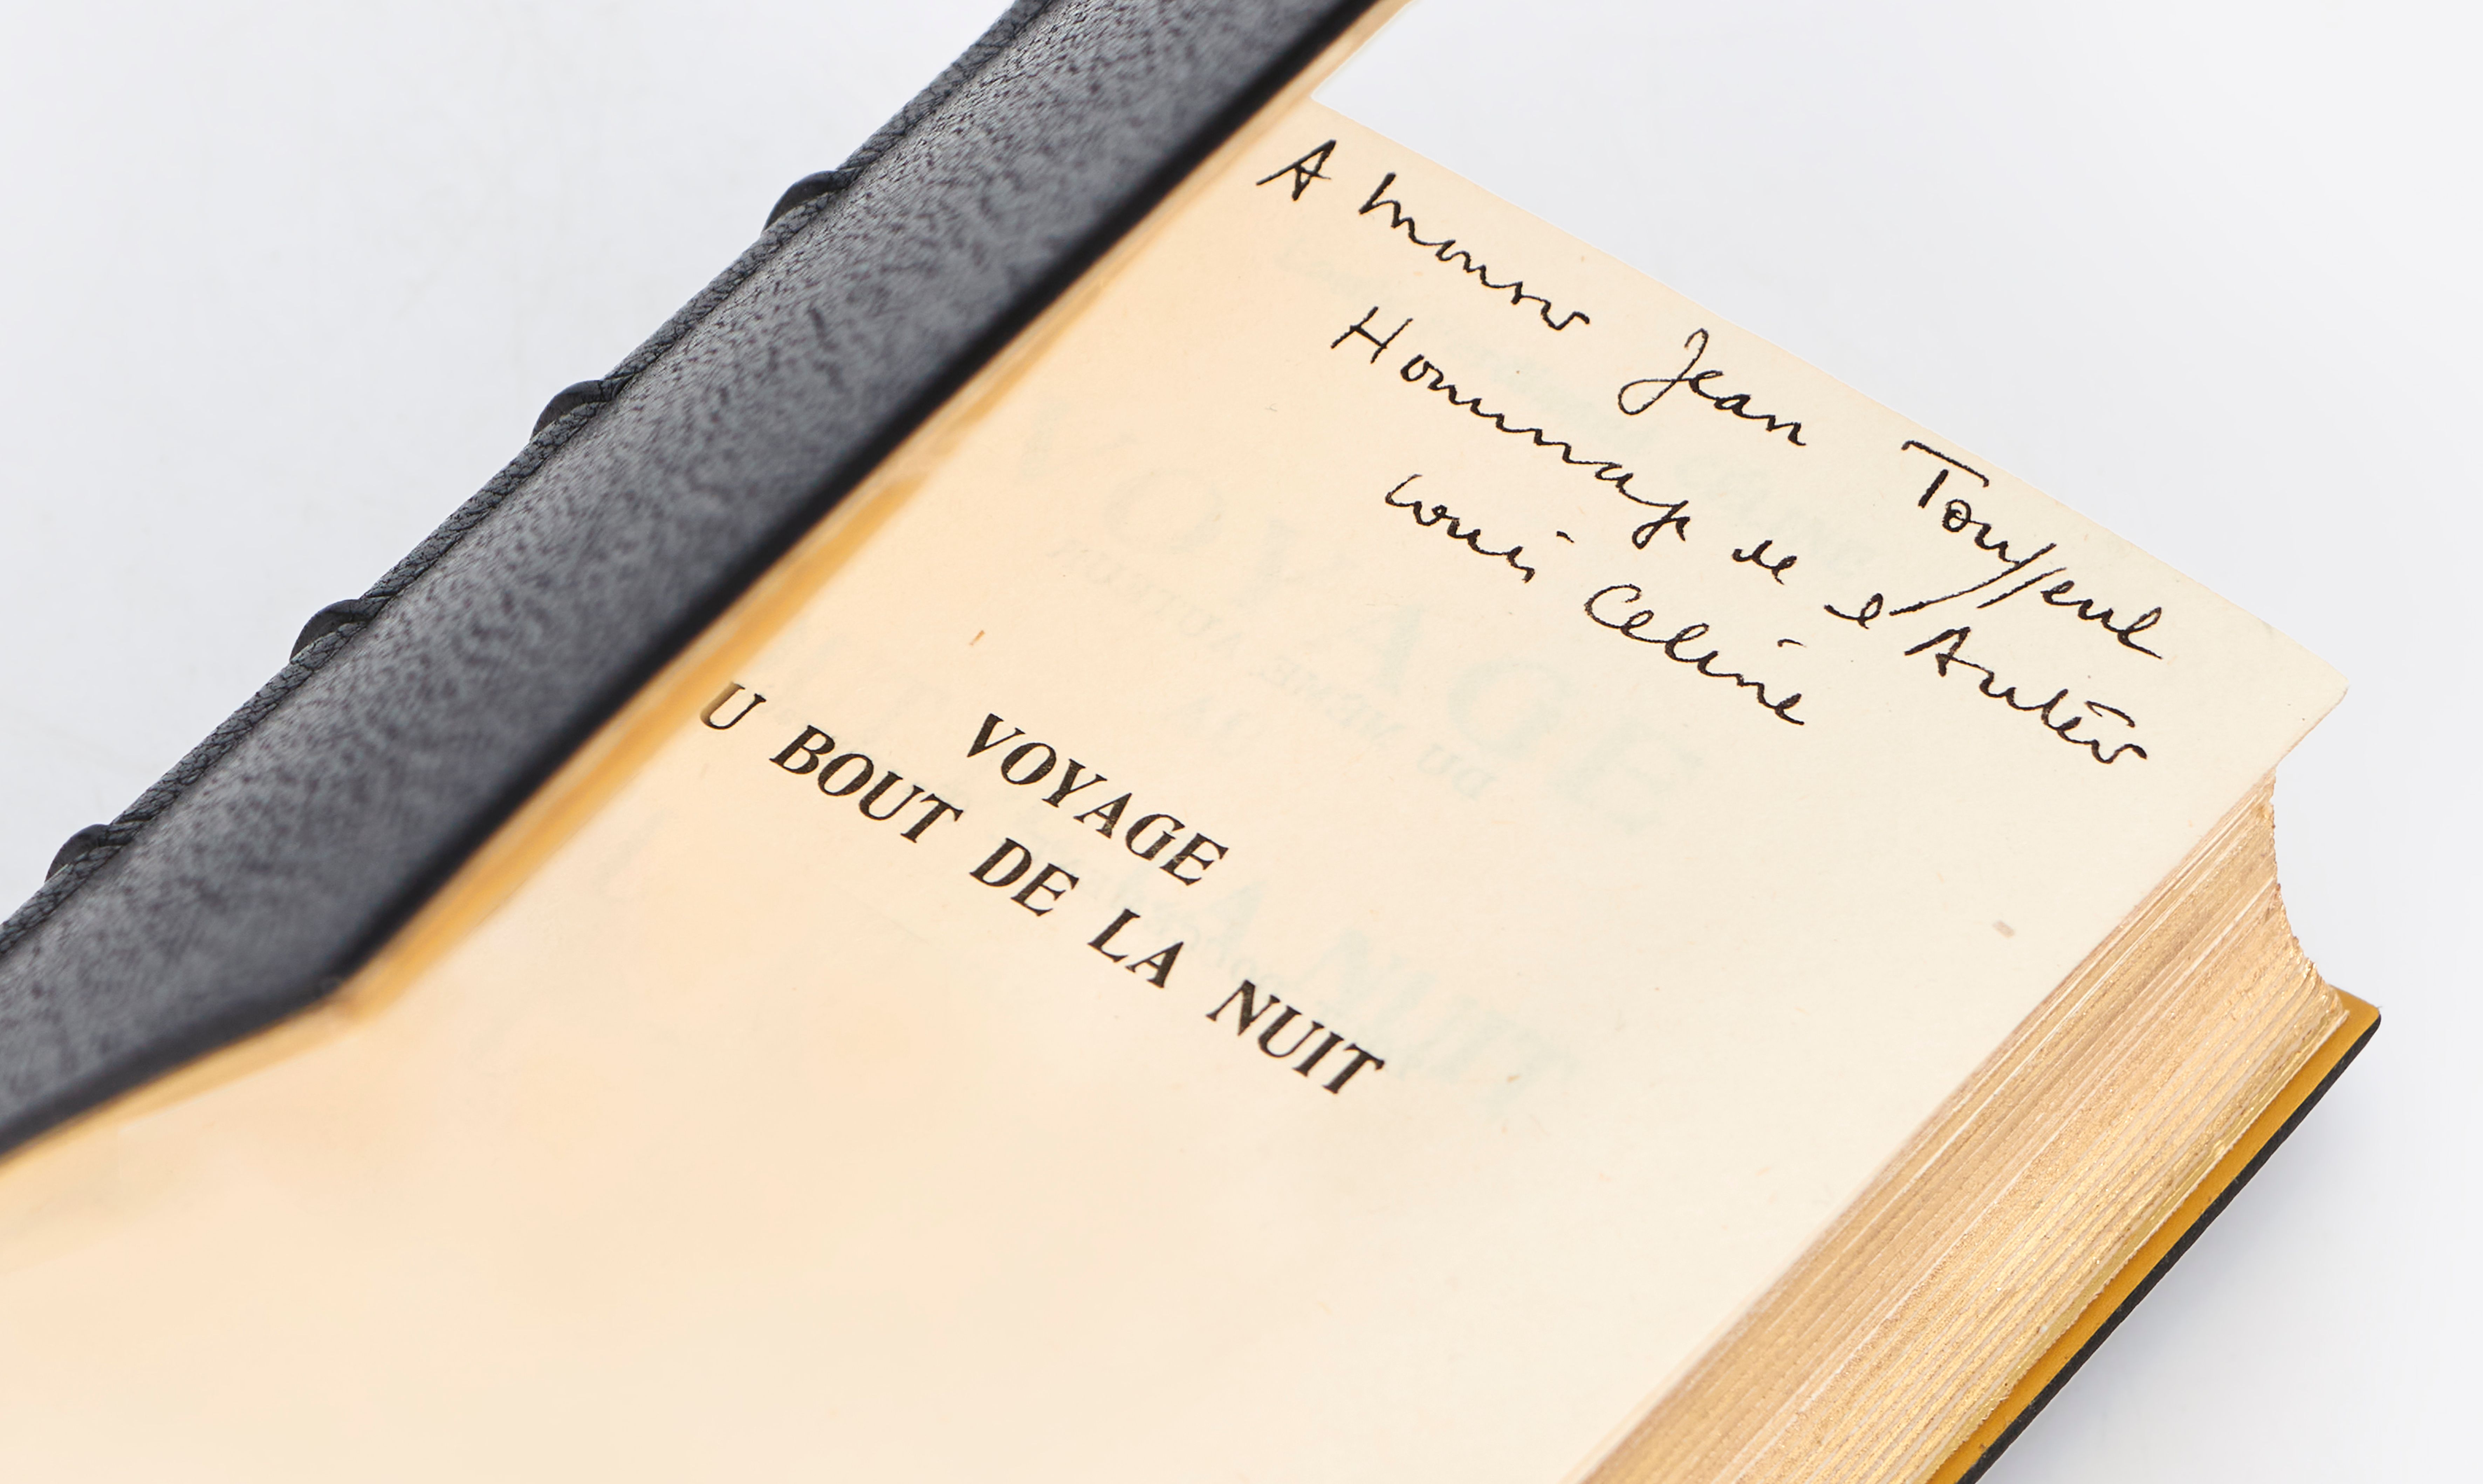 A Monsieur Jean Tousseul
Hommage de l'Auteur
Louis Celine
VOYAGE
U BOUT DE LA NUIT